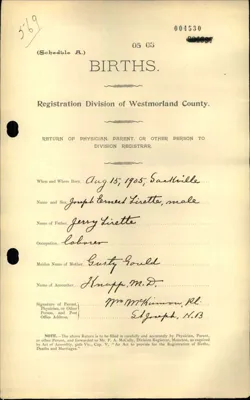 569
004530
(Schedule A.)
05 05
BIRTHS.
Registration Division of Westmorland County.
RETURN OF PHYSICIAN, PARENT, OR OTHER PERSON TO
DIVISION REGISTRAR.
When and Where Born, Aug 15, 1905, Sackville
Name and Sex, Joseph Ernest Lirette, male
Name of Father, Jerry Lirette
Occupation, Laborer
Maiden Name of Mother, Gould
Name of Accoucheur, Knapp, M.D.
Signature of Parent,
Physician, or Other
Person, and Post
Office Address,
Wm McKinnon, P.
St Joseph, N.B
NOTE.—The above Return is to be filled in carefully and accurately by Physician, Parent,
or other Person, and forwarded to Division Registrar, Moncton, as required
by Act of Assembly, "An Act to provide for the Registration of Births,
Deaths and Marriages."